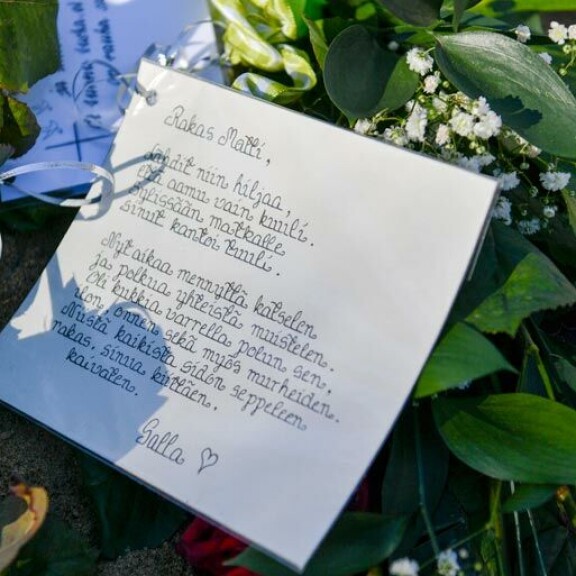 Rakas Matti,
Lähdit niin hiljaa,
että aamu vain kuuli.
Sylissään matkalle
sinut kantoi tuuli.
Nyt aikaa mennyttä katselen
ja polkua yhteistä muistelen.
Oli kukkia varrella polun sen,
ilon, onnen sekä myös murheiden.
Niistä kaikista sidon seppeleen
rakas, sinua kiittäen,
kaivaten.
Salla ♡